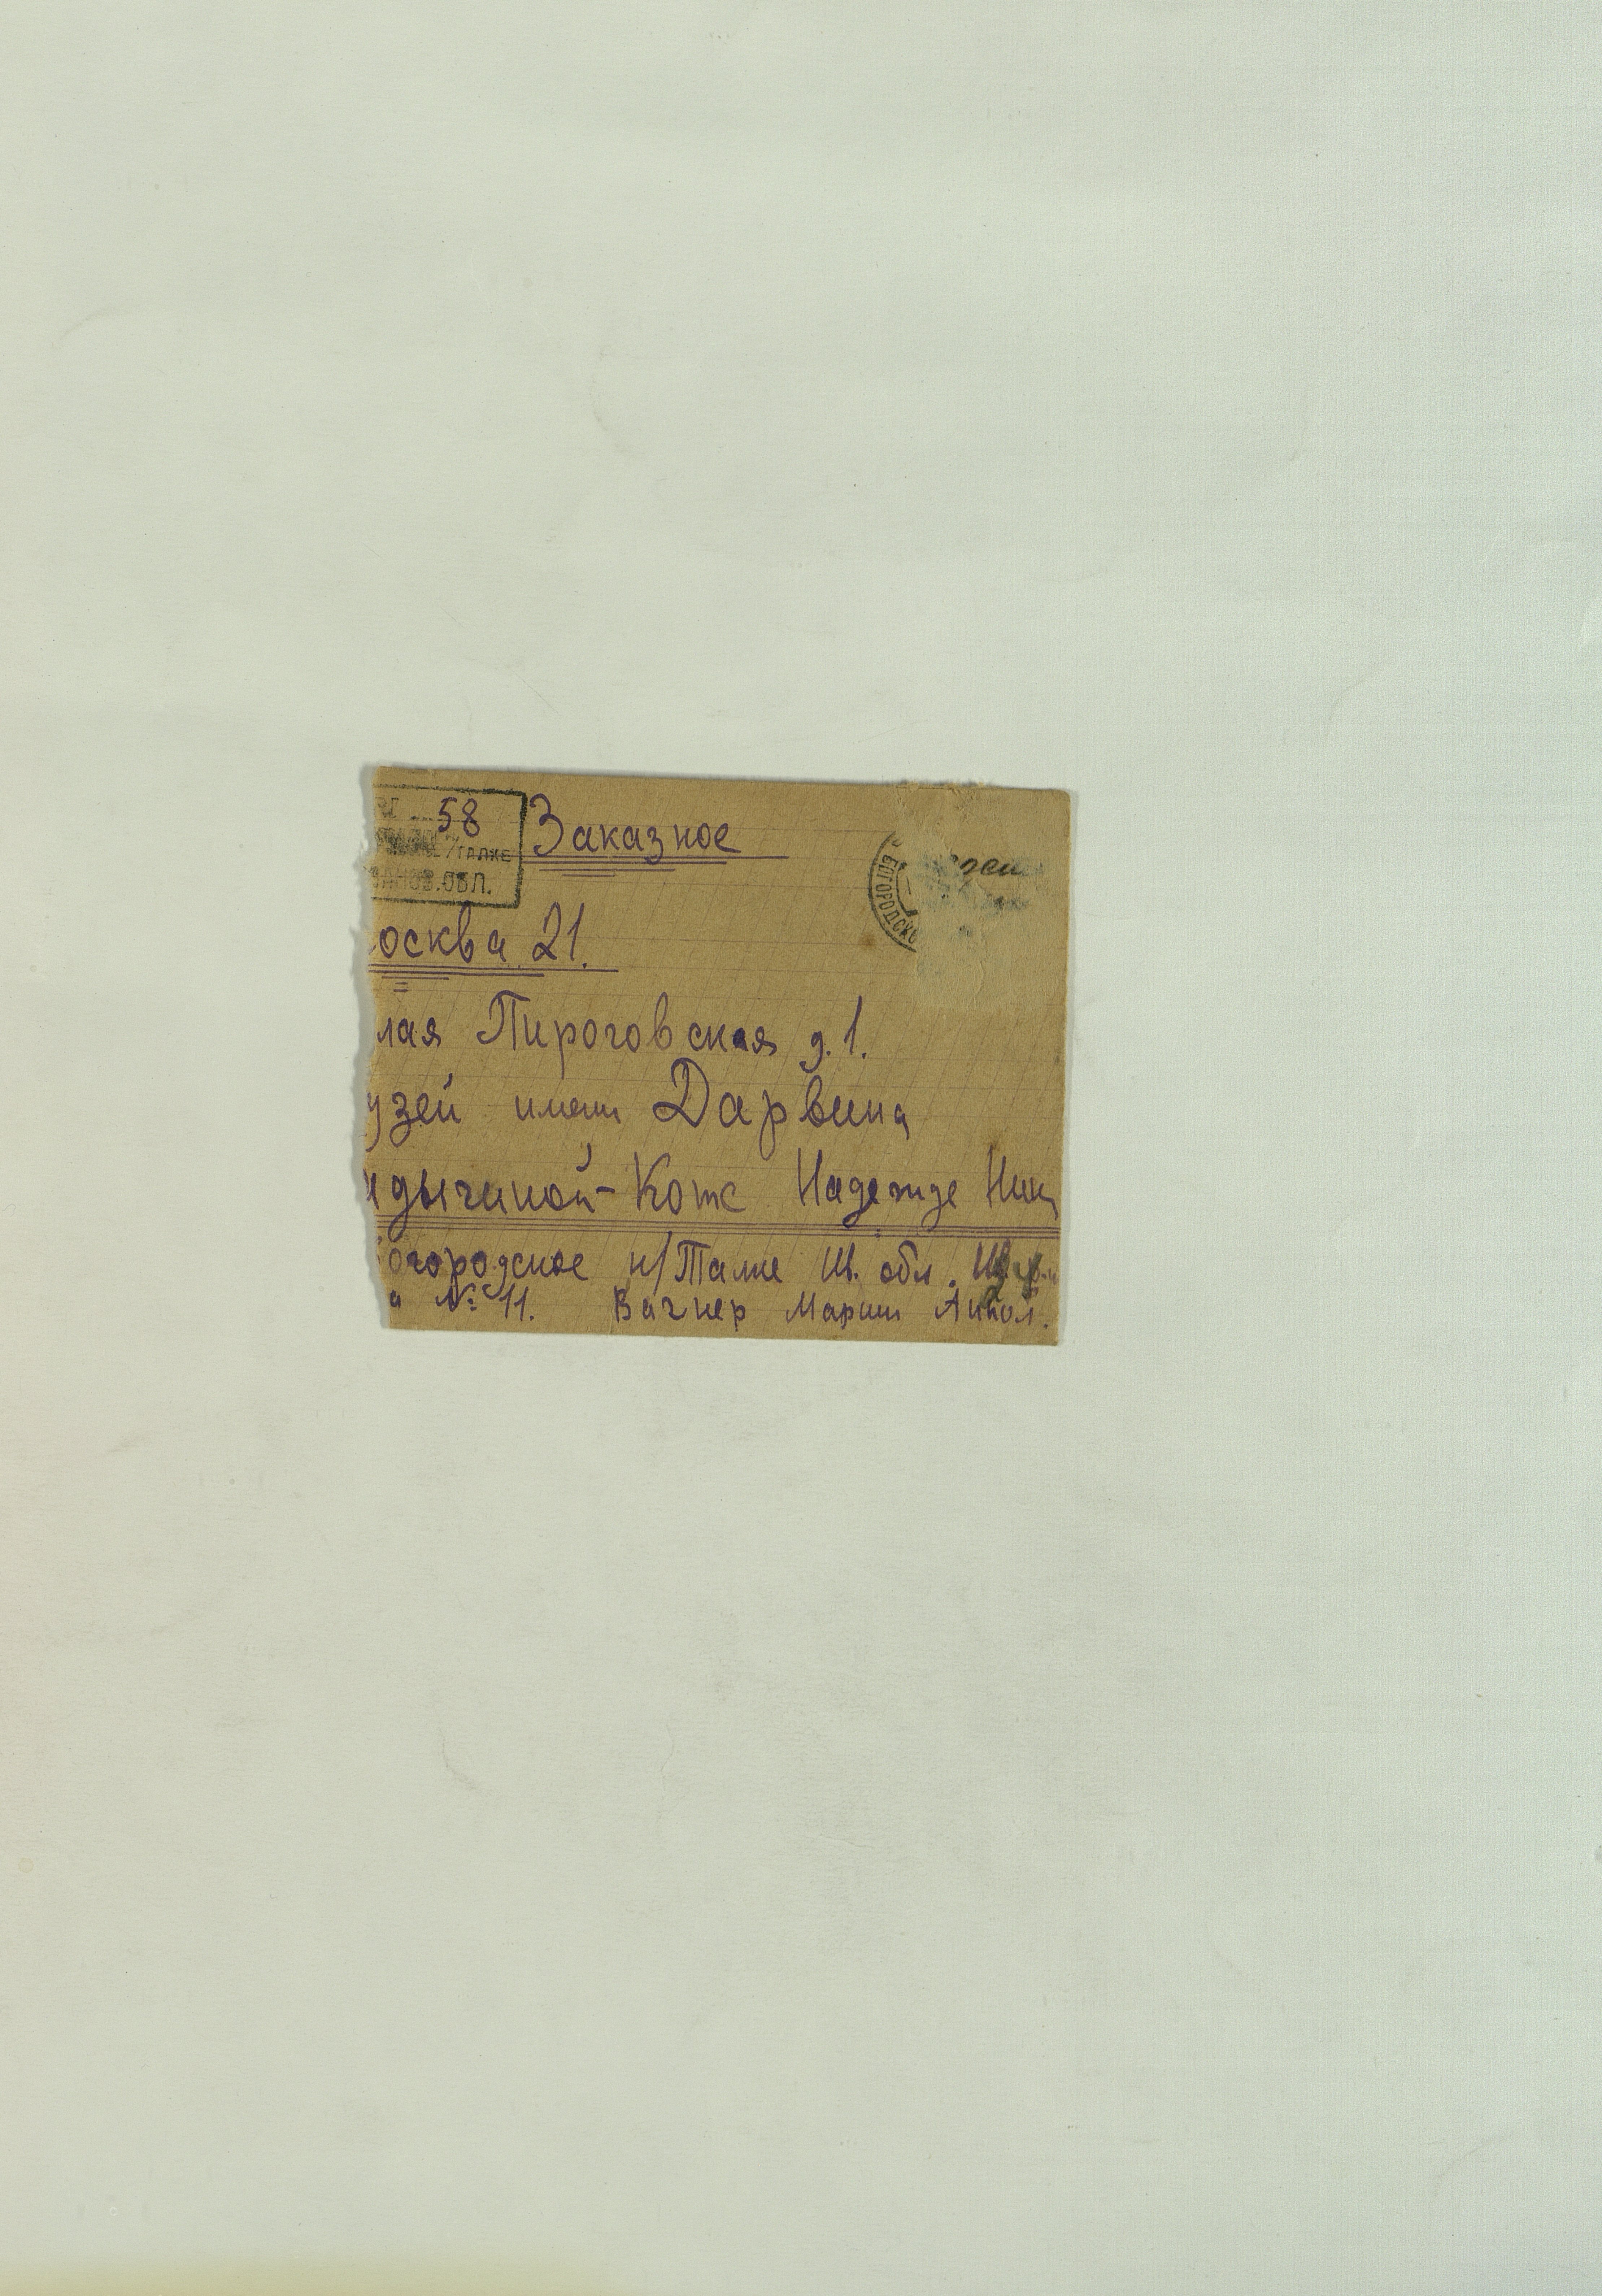 58
Заказное
/ТАЛКЕ
ОБЛ.
БОГОРОДСКО
осква 21.
лая Пироговская д. 1.
узей имени Дарвина
дыгиной-Котс Надежде Ник
огородское н/Талке Ив. обл.
а № 11. Вагнер Марии Антол.